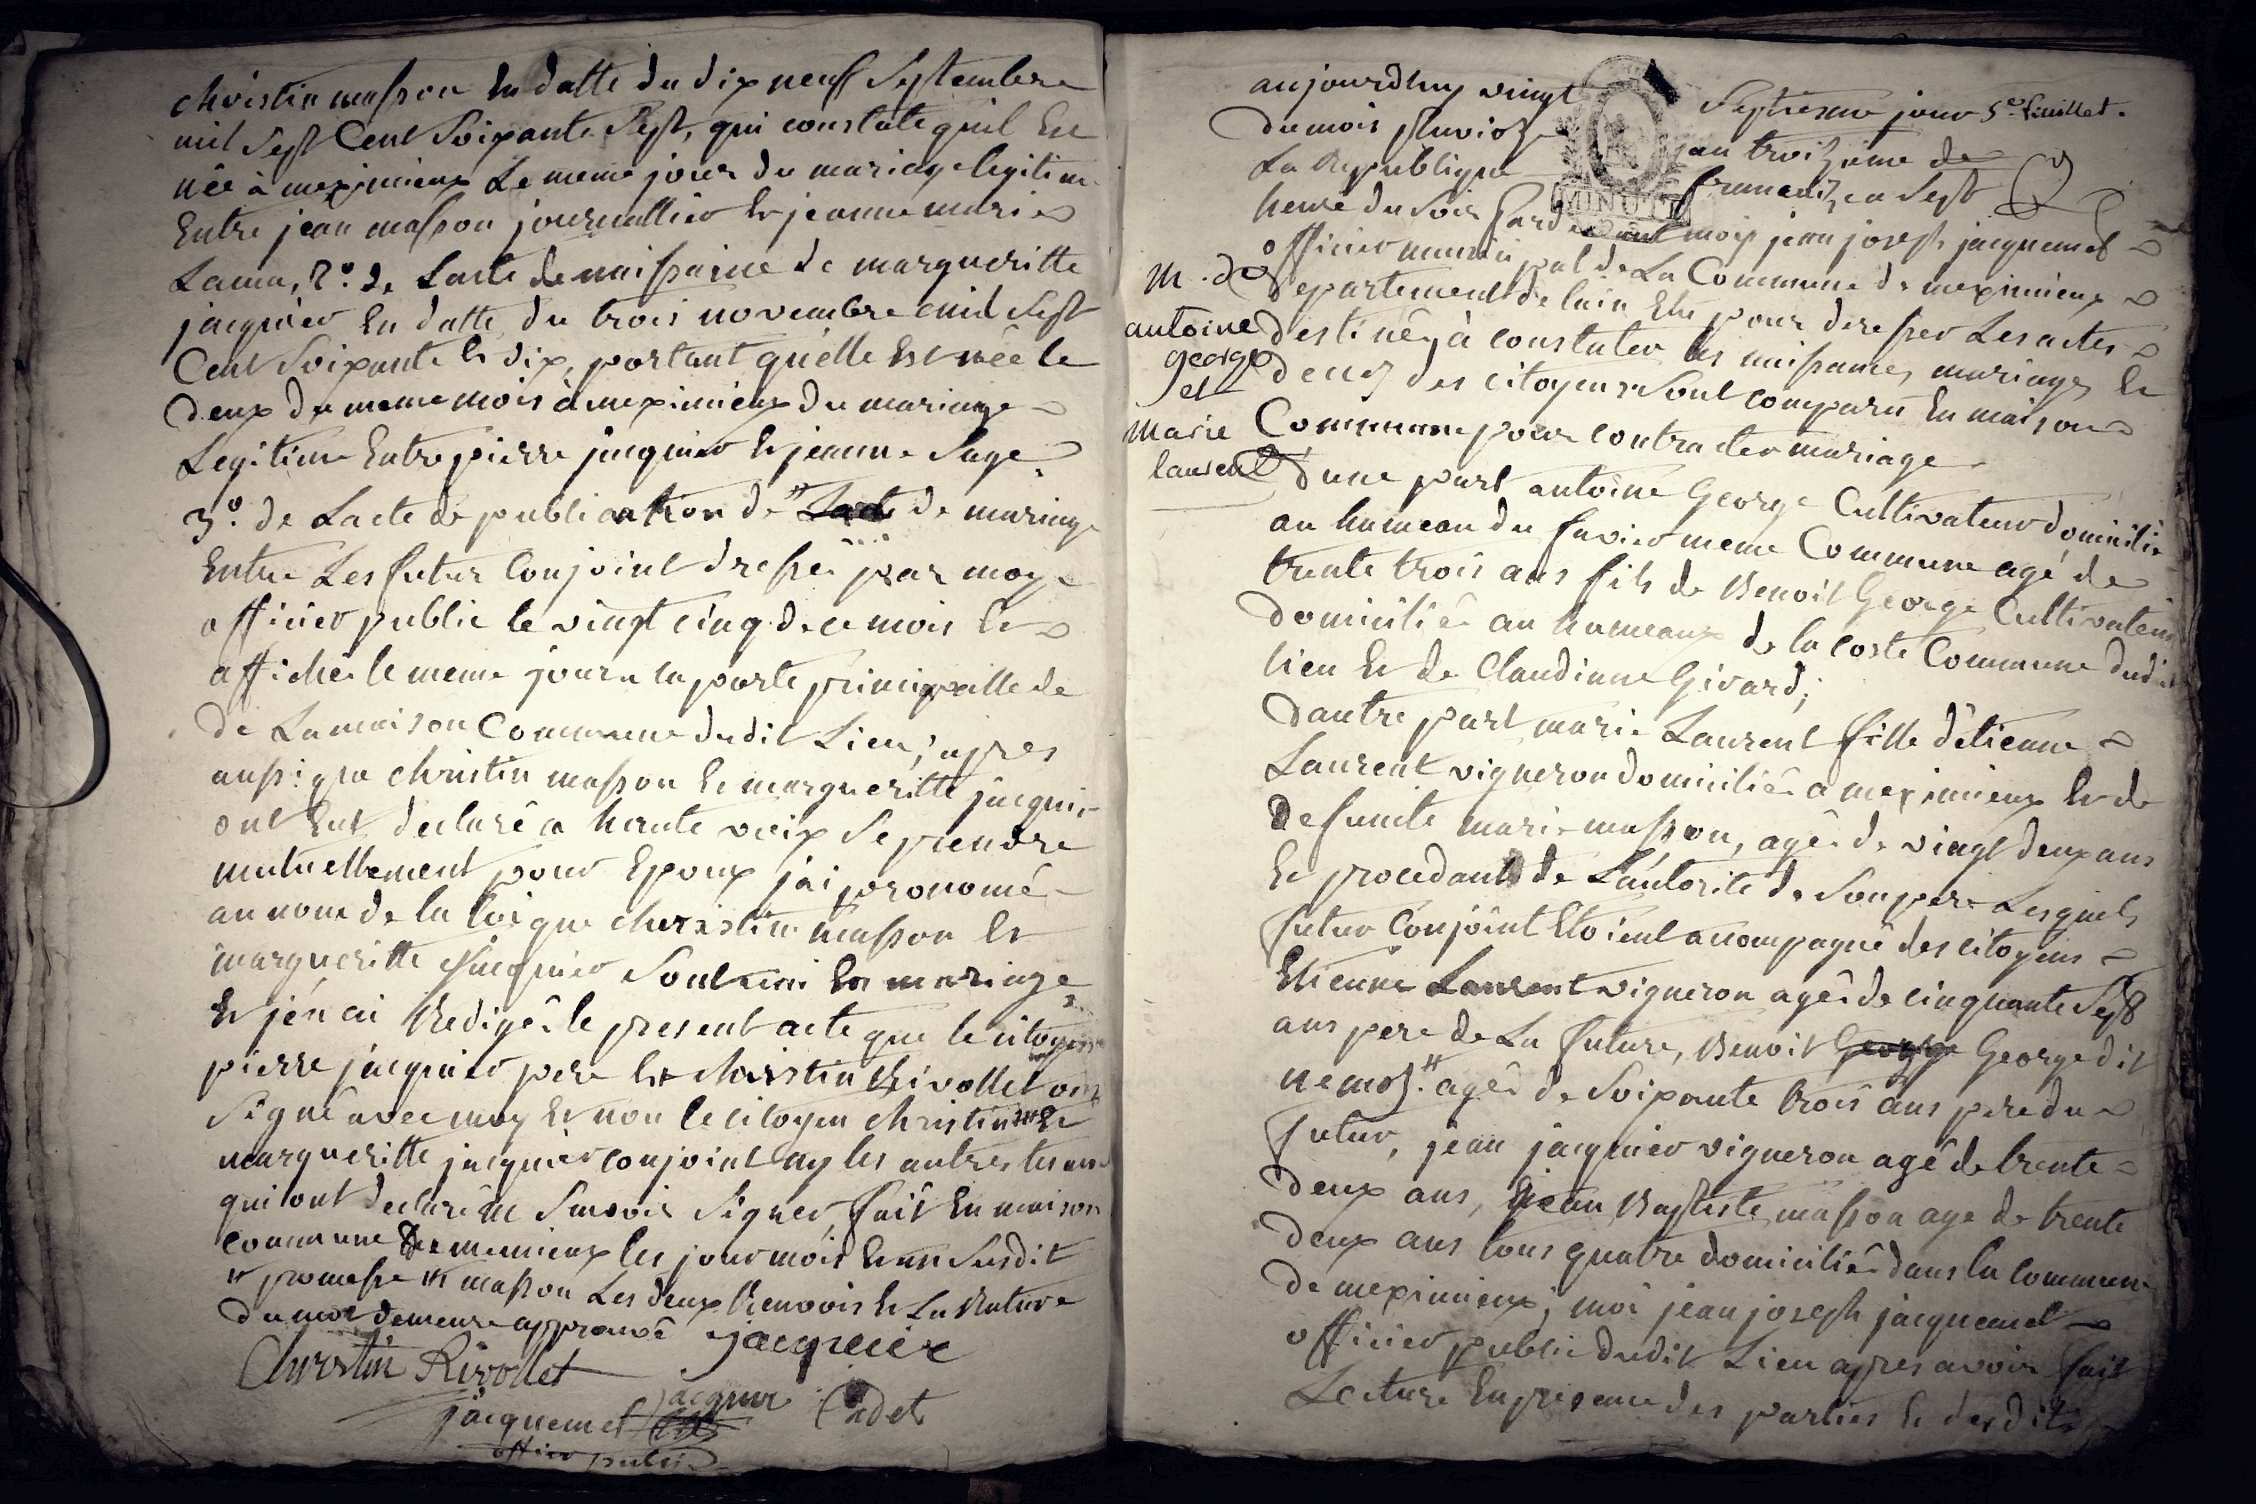 christin masson en datte du dix neuf Septembre
mil Sept Cent Soixante Sept, qui constate quil Est
née à meximieux Le meme jour du mariage legitime
Entre jean masson journallier Et jeanne marie
Lama, 2º. de Lacte de naissaine de margueritte
jacquier En datte du trois novembre mil Sept
Cent Soixante Et dix, portant quélle Est née le
deux du meme mois à meximieux du mariage
Legitime Entre pierre jacquier Et jeanne Sage
3º. de Lacte de publication de # de mariage
Entre Les futur Conjoint dressé par moy
officier public le vingt cinq de ce mois Et
affiché le meme jour a la porte principalle de
de La maison Commune dudit Lieu; apres
aussi que christin masson Et margueritte jacquier
ont Eut declaré a haute voix Se prendre
mutuellement pour Epoux jai prononcé
au nom de la loi que christin masson Et
margueritte jacquier Sont uni En mariage
Et jén ai Redigé le present acte que le citoyen
pierre jacquier pere Et christin Rivollet ont
Signé avec moy Et non le citoyen christin ## Et
margueritte jacquier conjoint ny les autres temoins
qui ont declaré ne Savoir Signer, fait En maison
commune de meximieux les jour mois Et an Susdit
# promesse ## masson Les deux Renvois Et La Rature
du mot demeure approuvé jacquier
Christin Rivollet
jacquemet jacquier Cadet
officier public
aujourdhuy vingt Septiesme jour 5e. feuillet.
du mois pluviose lan troizieme de
La Republique francaize a Sept
heure du Soir Pardevant moy jean joseph jacquemet
MINUTE
officier municipal de La Commune de meximieux
departement de lain Elu pour dresser Les actes
destinéz à constater les naissances mariages Et
decez des citoyens Sont comparu En maison
Commune pour contracter mariage
m. de
antoine
george
et
marie
laurent
dune part antoine George Cultivateur domicilié
au hameau du favier meme Commune agé de
trente trois ans fils de Benoit George Cultivateur
domicilié au hameaux de la coste Commune dudit
lieu Et de Claudinne Girard;
dautre part marie Laurent fille d'étienne
Laurent vigneron domicilié a meximieux Et de
defuncte marie masson, agée de vingt deux ans
Et procedant de Láutorité de Son pere Lesquels
futur Conjoint Etoient accompagné des citoyens
Etienne Laurent vigneron agé de cinquante Sept
ans pere de La future, Benoit George George dit
nemoz # agé de Soixante trois ans pere du
futur, jean jacquier vigneron agé de trente
deux ans, jean Baptiste masson age de trente
deux ans tous quatre domicilié dans la commune
de meximieux; moi jean joseph jacquemet
officier public dudit Lieu apres avoir fait
Lecture En presence des parties Et desdits